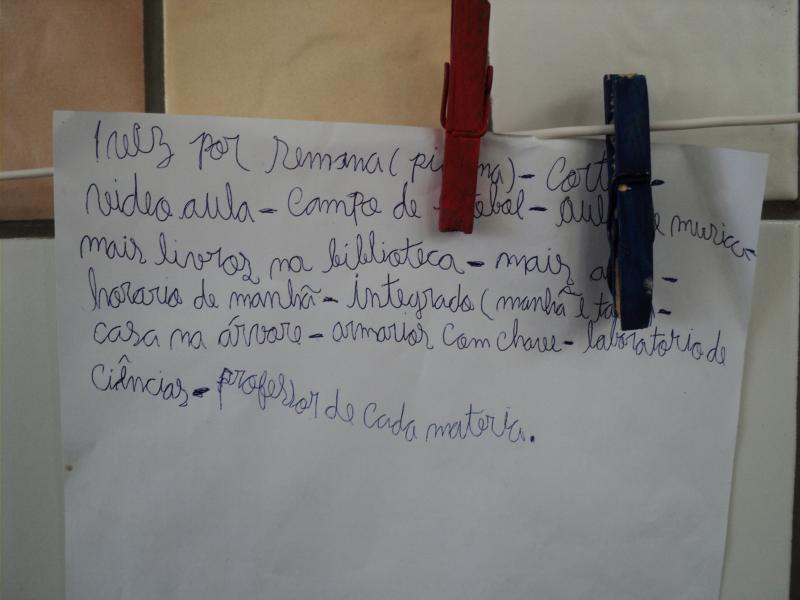 1 vez por semana( - 
video aula - campo de - e musica -
mais livros na biblioteca - mais -
horario de manhã - integrado (manhã e -
casa na árvore - armarios com chave - laboratorio de
ciências - professor de cada materia.